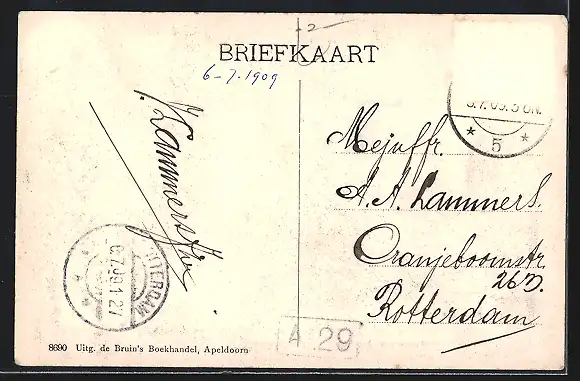 2
BRIEFKAART
6-7-1909
J. Lammers Jr.
Mejuffr.
A. A. Lammers.
Oranjeboomstr
26 B.
Rotterdam
5
TTERDAM
6.7.09.1-2V
A 29
8690 Uitg. de Bruin's Boekhandel, Apeldoorn